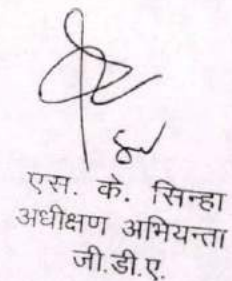 एस. के. सिन्हा
अधीक्षण अभियन्ता
जी.डी.ए.